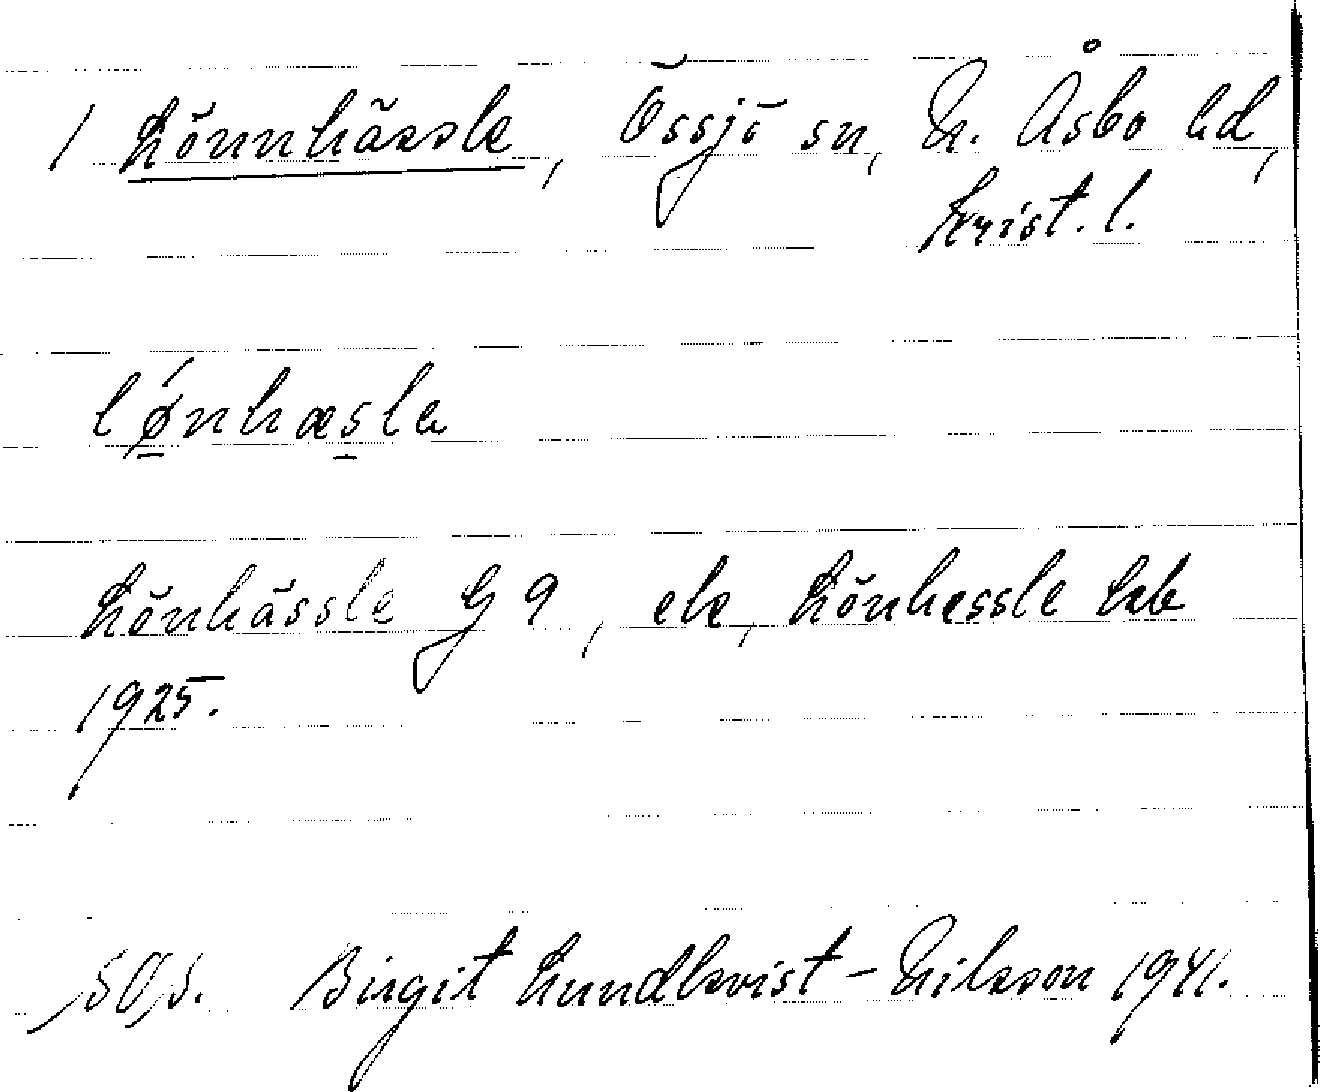 1 Lönnhässle, Össjö sn, N. Åsbo hd,
Krist. l.
lǿnhæsla
Lönhässle G 9, ek, Lönhessle
1925.
Birgit Lundkvist-Nilsson 1941.